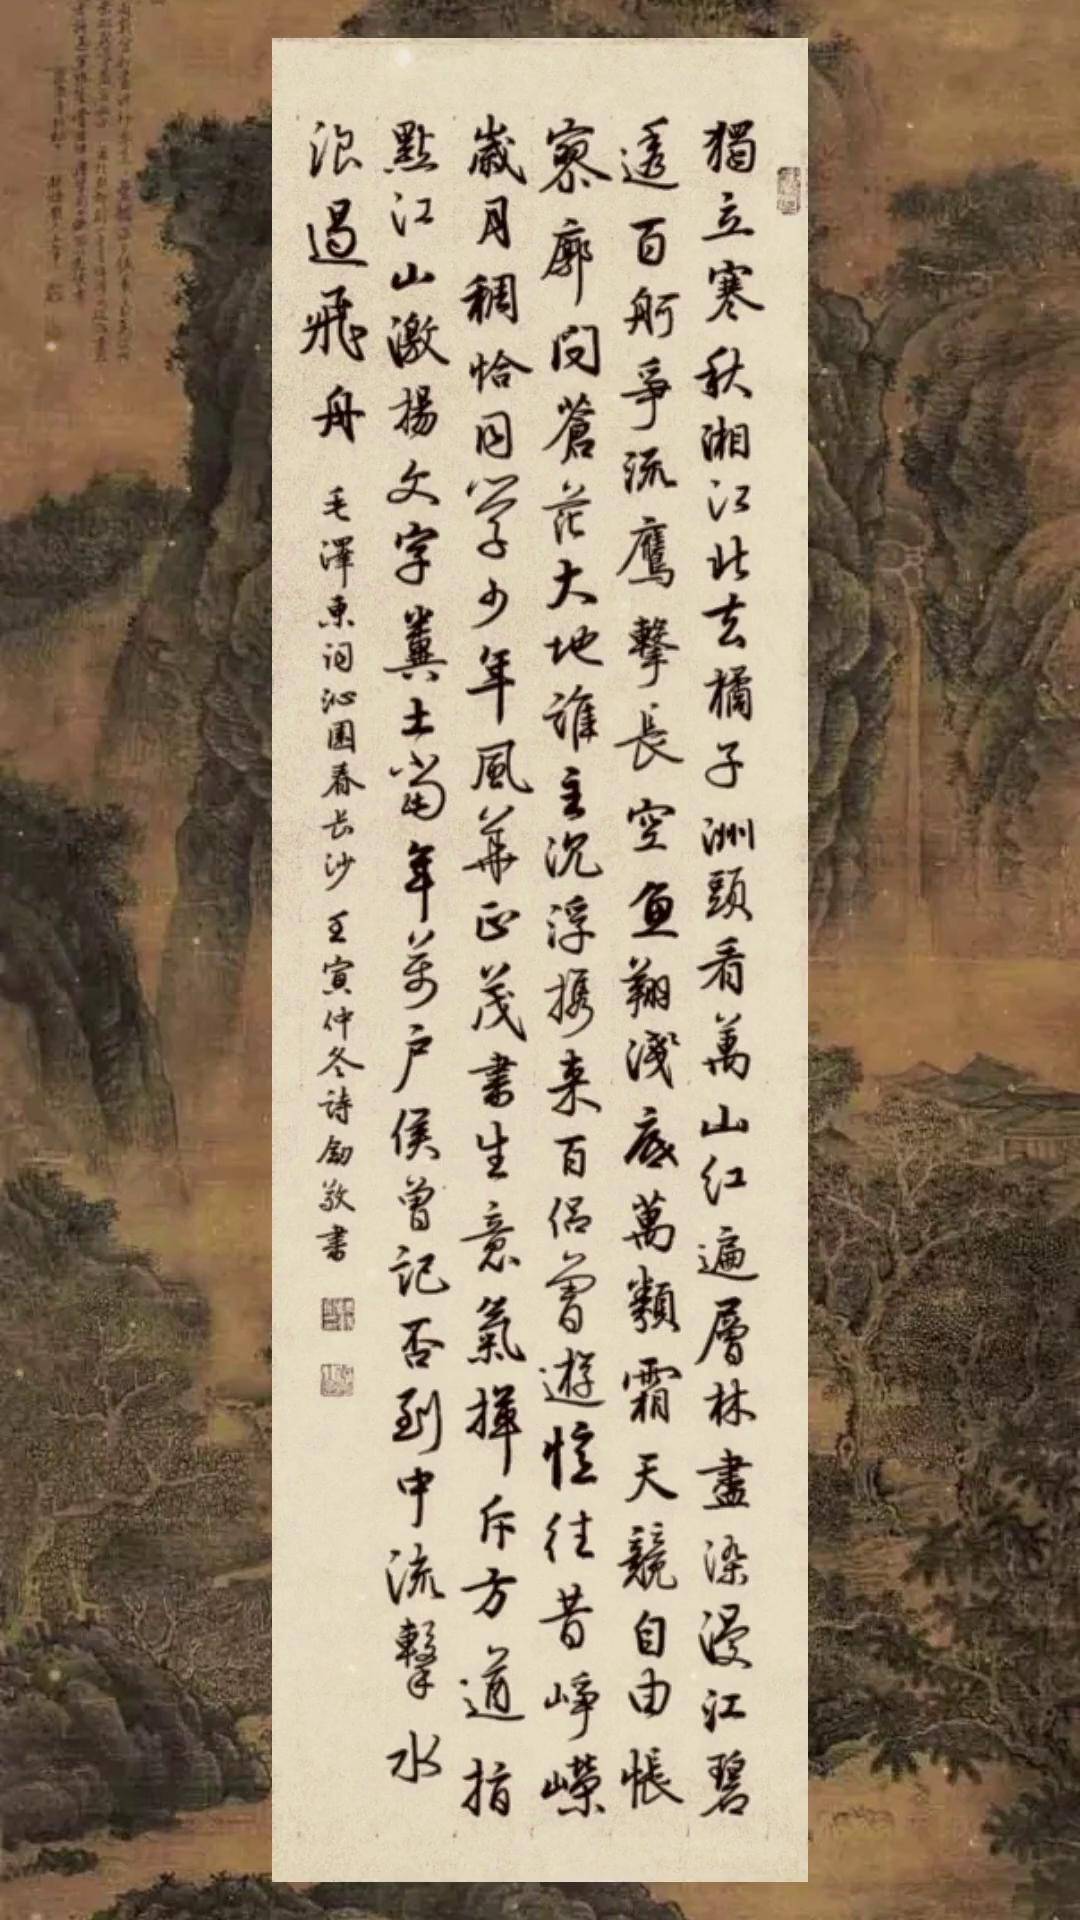 獨立寒秋湘江北去橘子洲頭看萬山紅遍層林盡染漫江碧
透百舸爭流鷹擊長空魚翔淺底萬類霜天競自由悵
寥廓問蒼茫大地誰主沉浮携來百侶曾遊憶往昔崢嶸
歲月稠恰同學少年風華正茂書生意氣揮斥方遒指
點江山激揚文字糞土當年萬户侯曾記否到中流擊水
浪遏飛舟 毛澤東詞沁園春長沙 壬寅仲冬詩劍敬書